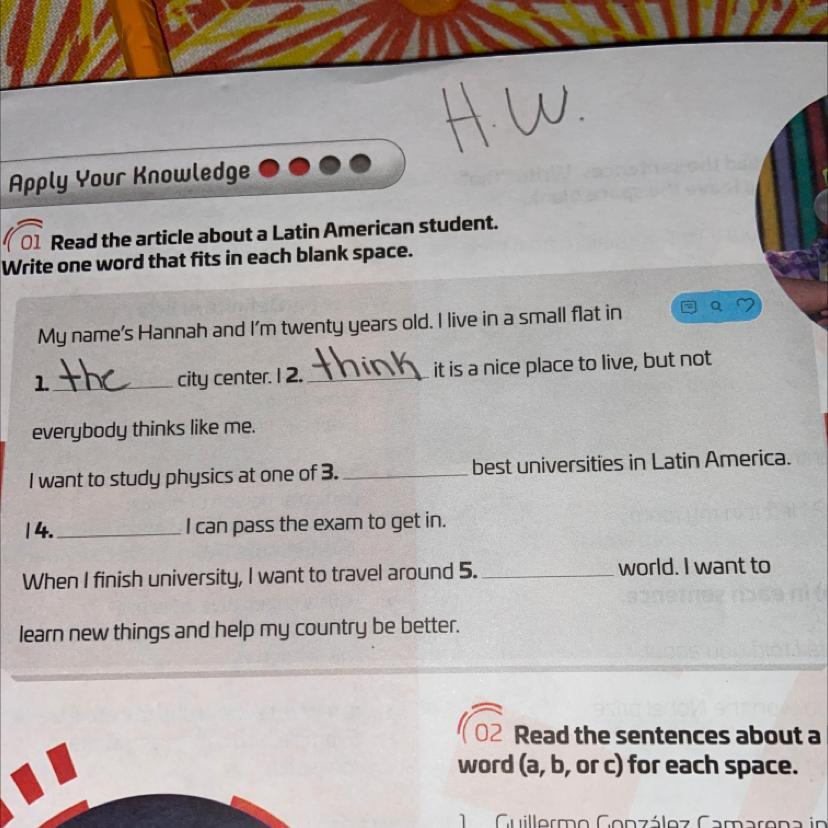 H.W.
Apply Your Knowledge
01 Read the article about a Latin American student.
Write one word that fits in each blank space.
My name's Hannah and I'm twenty years old. I live in a small flat in
1. the city center. I 2. think it is a nice place to live, but not
everybody thinks like me.
I want to study physics at one of 3. best universities in Latin America.
I 4. I can pass the exam to get in.
When I finish university, I want to travel around 5. world. I want to
learn new things and help my country be better.
02 Read the sentences about a
word (a, b, or c) for each space.
1 Guillermo González Camarena in